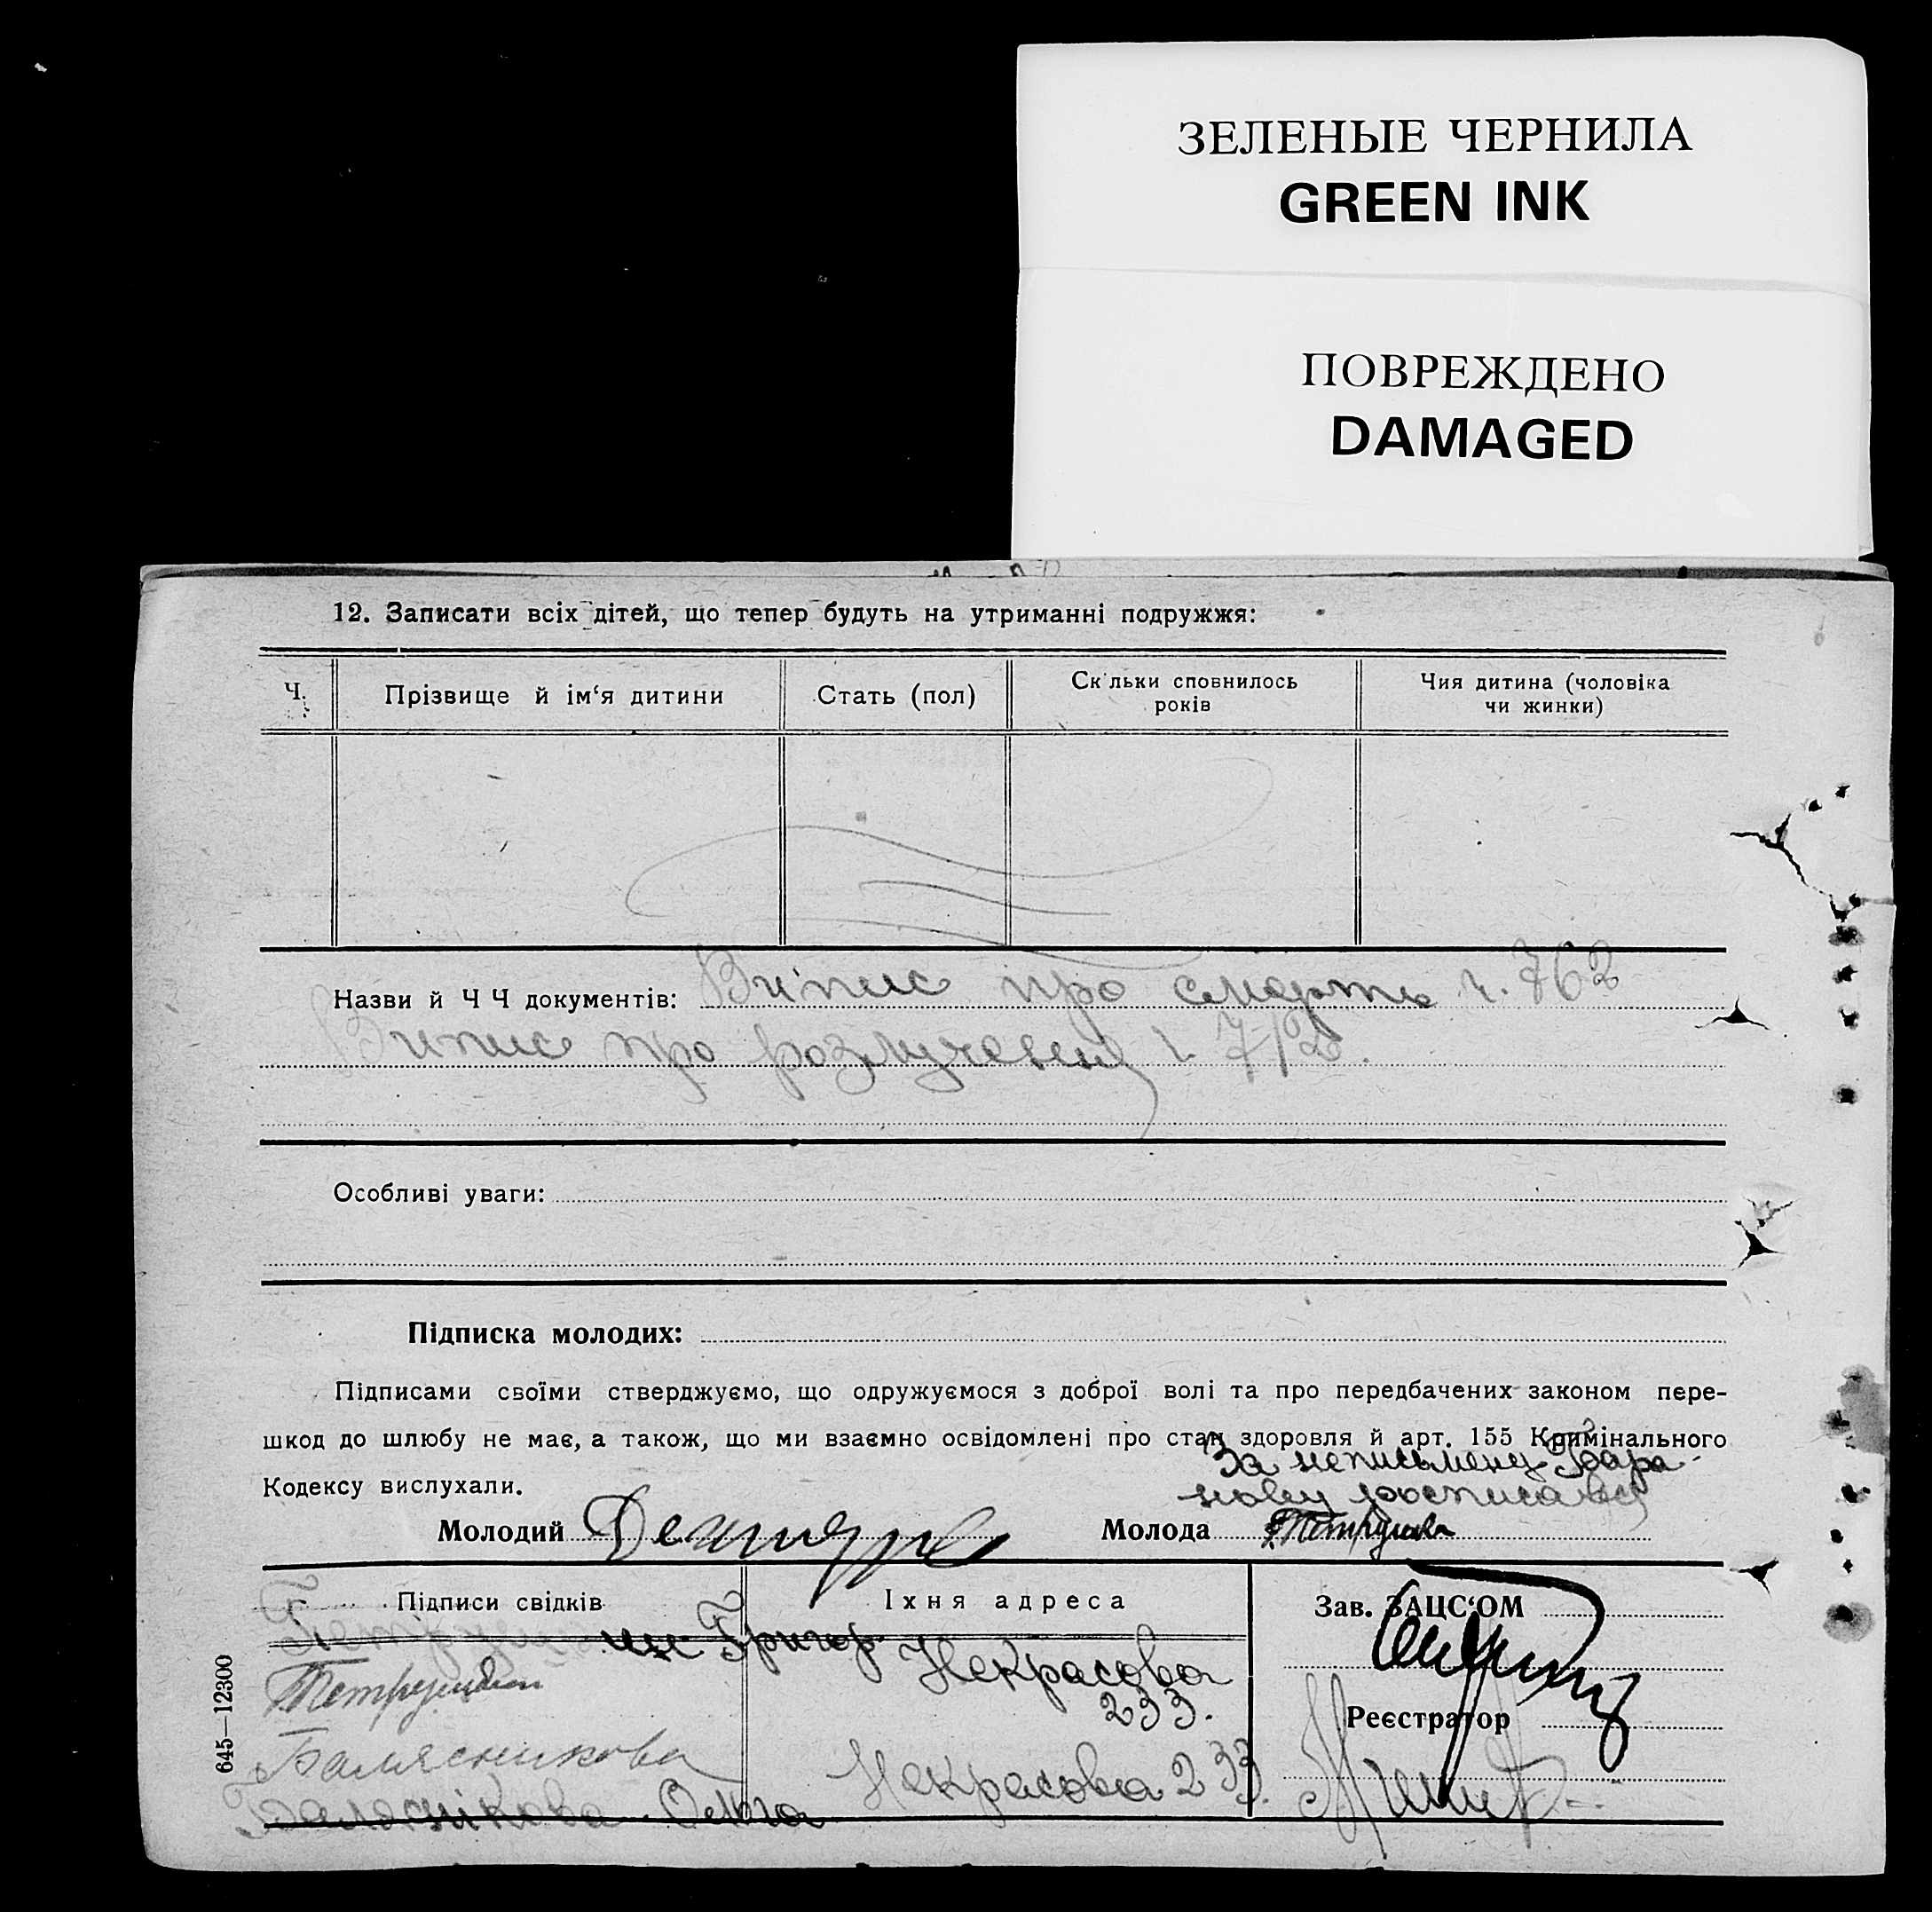 ЗЕЛЕНЫЕ ЧЕРНИЛА
GREEN INK
ПОВРЕЖДЕНО
DAMAGED
12. Записати всіх дітей, що тепер будуть на утриманні подружжя:
Ч.
Прізвище й ім‘я дитини
Стать (пол)
Скільки сповнилось
років
Чия дитина (чоловіка
чи жинки)
Назви й Ч Ч документів: Випис про смерть ч. 762
Випис про розлучення ч. 712.
Особливі уваги:
Підписка молодих:
Підписами своїми стверджуємо, що одружуємося з доброї волі та про передбачених законом пере-
шкод до шлюбу не має, а також, що ми взаємно освідомлені про стан здоровля й арт. 155 Кримінального
Кодексу вислухали.
За неписьмену Бара-
нову росписався
Молодий
Молода
Підписи свідків
Їхня адреса
Зав. ЗАЦС‘ОМ
Григор
Некрасова
233.
Реєстратор
Балясникова
Некрасова 233.
Балясникова Ольга
645—12300